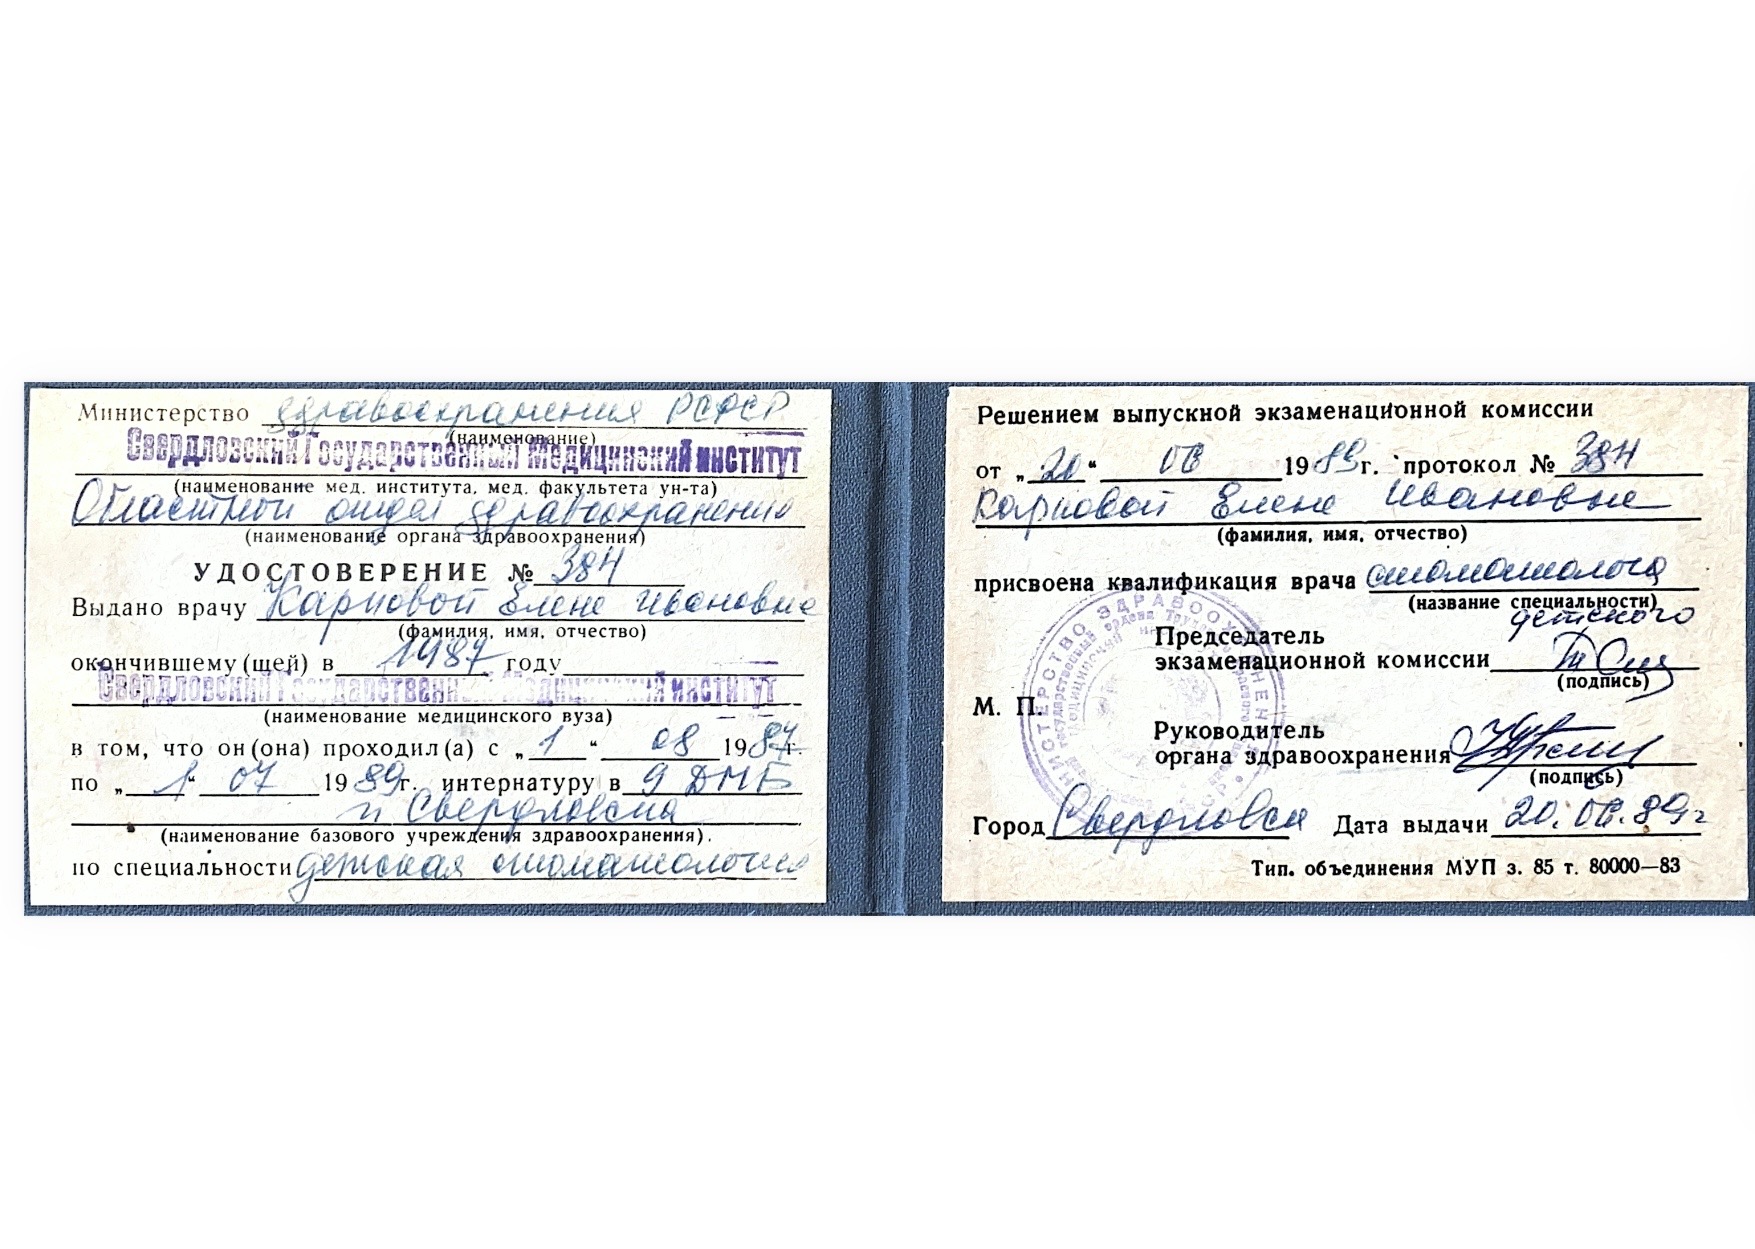 Министерство здравоохранения РСФСР
(наименование)
Свердловский Государственный Медицинский институт
(наименование мед. института, мед. факультета ун-та)
Областной отдел здравоохранения
(наименование органа здравоохранения)
УДОСТОВЕРЕНИЕ № 384
Выдано врачу Карповой Елене Ивановне
(фамилия, имя, отчество)
окончившему (щей) в 1987 году
Свердловский Государственный Медицинский институт
(наименование медицинского вуза)
в том, что он (она) проходил (а) с „ 1 “ 08 1987 г.
по „ 1 “ 07 1989 г. интернатуру в 9 ДМБ
г. Свердловска
(наименование базового учреждения здравоохранения).
по специальности детская стоматология
Решением выпускной экзаменационной комиссии
от „ 20 “ 06 1989 г. протокол № 384
Карповой Елене Ивановне
(фамилия, имя, отчество)
присвоена квалификация врача стоматолога
(название специальности)
детского
Председатель
экзаменационной комиссии
(подпись)
М. П.
Руководитель
органа здравоохранения
(подпись)
Город Свердловск Дата выдачи 20.06.89г
Тип. объединения МУП з. 85 т. 80000—83
МИНИСТЕРСТВО ЗДРАВООХРАНЕН